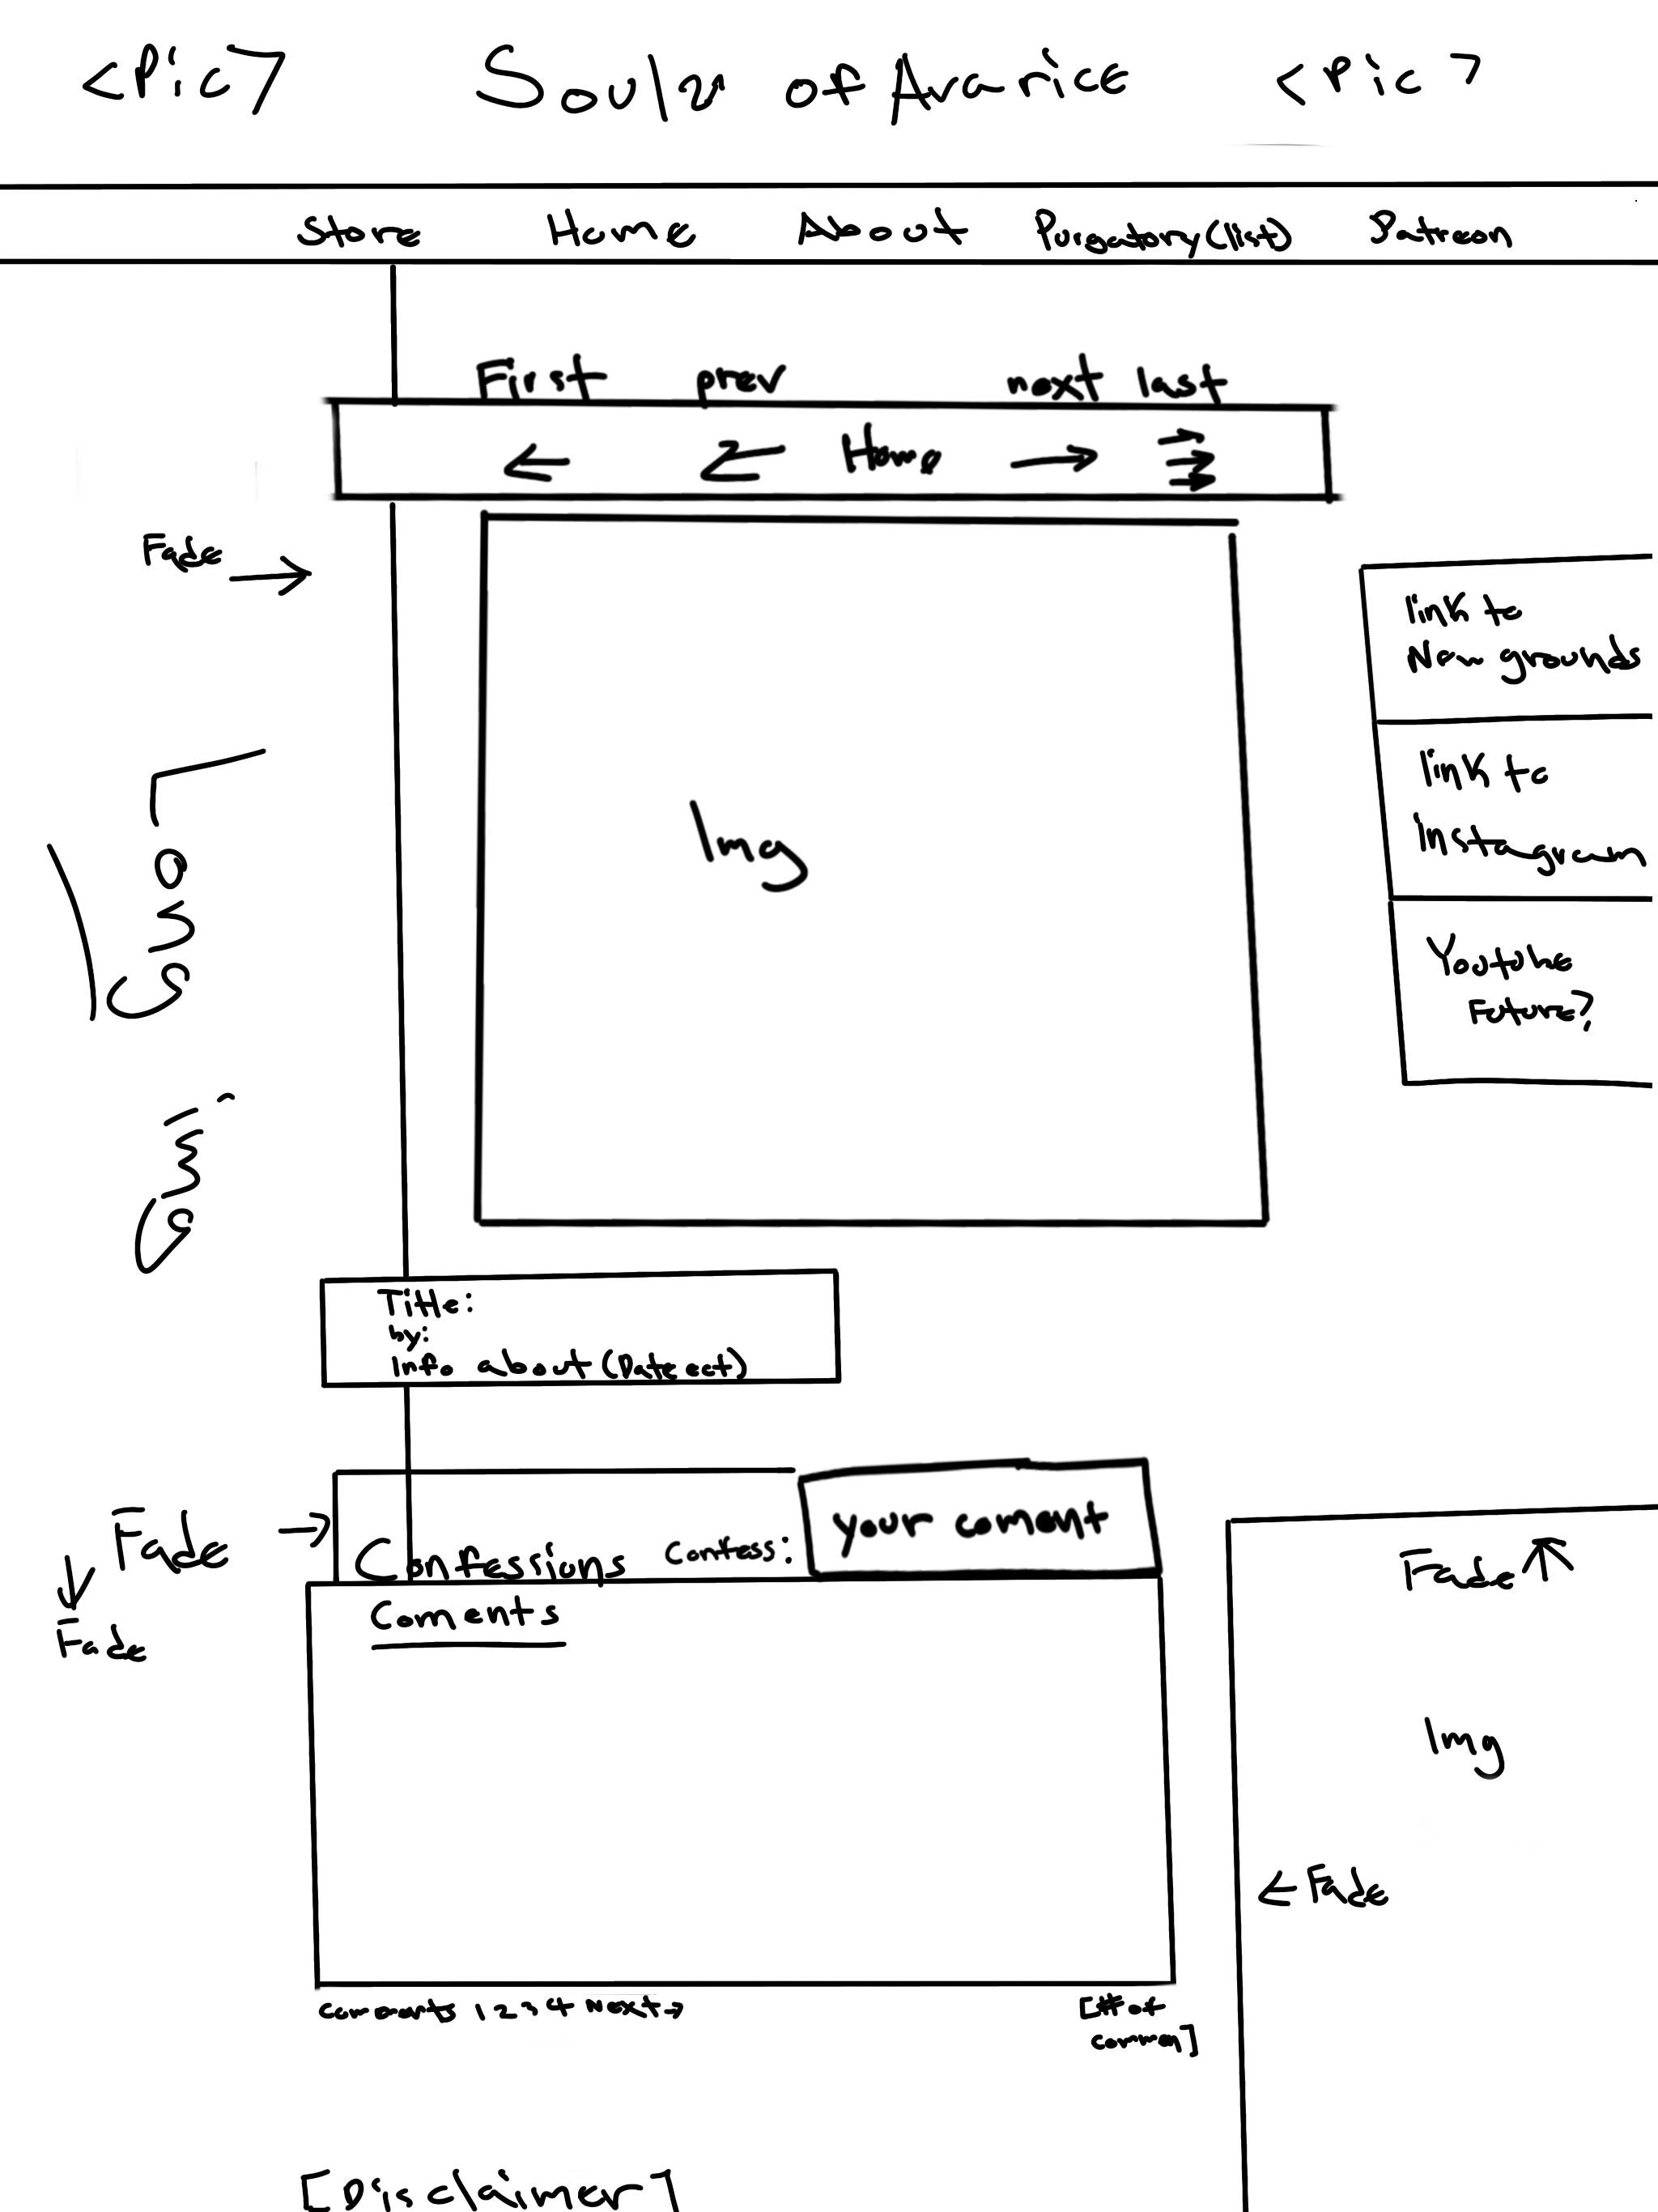 <Pic> Souls of Avarice <Pic>
Store Home About Purgatory(list) Patreon
First prev next last
Home
Fade
link to
New grounds
link to
instagram
Youtube
Future?
Img
Title:
by:
Info about (Date ect)
Fade
Fade
Confessions Confess: your coment
Coments
Fade
Img
Fade
Comments 1 2 3 4 Next
[# of
commen]
[Disclaimer]